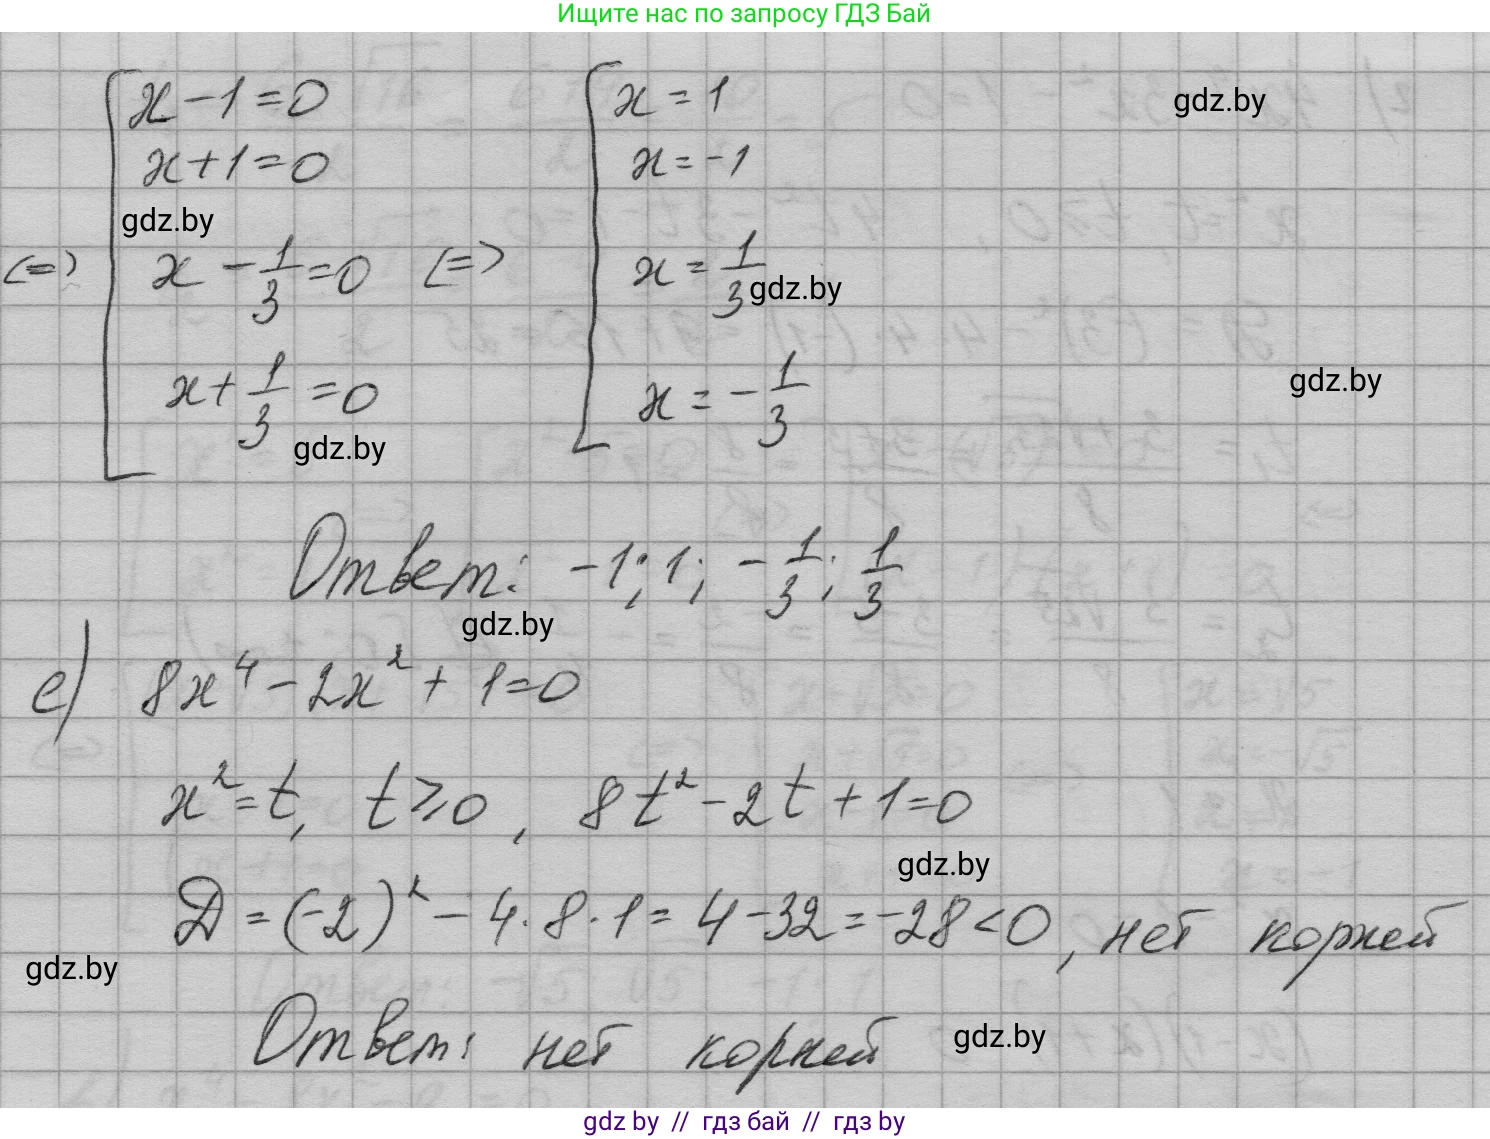 Ищите нас по запросу ГДЗ Бай
x - 1 = 0
x = 1
gdz.by
x + 1 = 0
x = -1
gdz.by
<=> x - 1/3 = 0 <=> x = 1/3
gdz.by
x + 1/3 = 0
x = -1/3
gdz.by
gdz.by
Ответ: -1; 1; -1/3; 1/3
gdz.by
е) 8x⁴ - 2x² + 1 = 0
x² = t, t ⩾ 0, 8t² - 2t + 1 = 0
gdz.by
Д = (-2)² - 4·8·1 = 4 - 32 = -28 < 0, нет корней
gdz.by
Ответ: нет корней
gdz.by
gdz by // гдз бай // гдз by